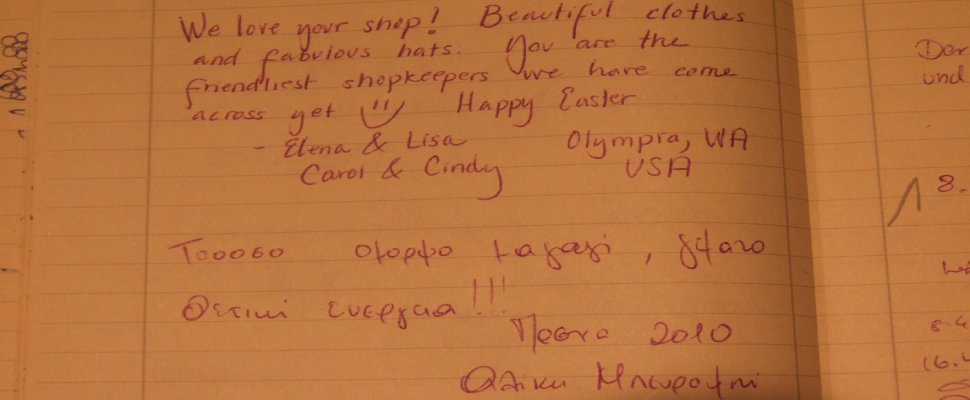 We love your shop! Beautiful clothes
and fabulous hats. You are the
friendliest shopkeepers we have come
across yet Happy Easter
- Elena & Lisa Olympia, WA
Carol & Cindy USA
Τοοοσο όμορφο μαγαζί,
Θετική ενέργεια!!!
2010
Dar
und
8.
16.4